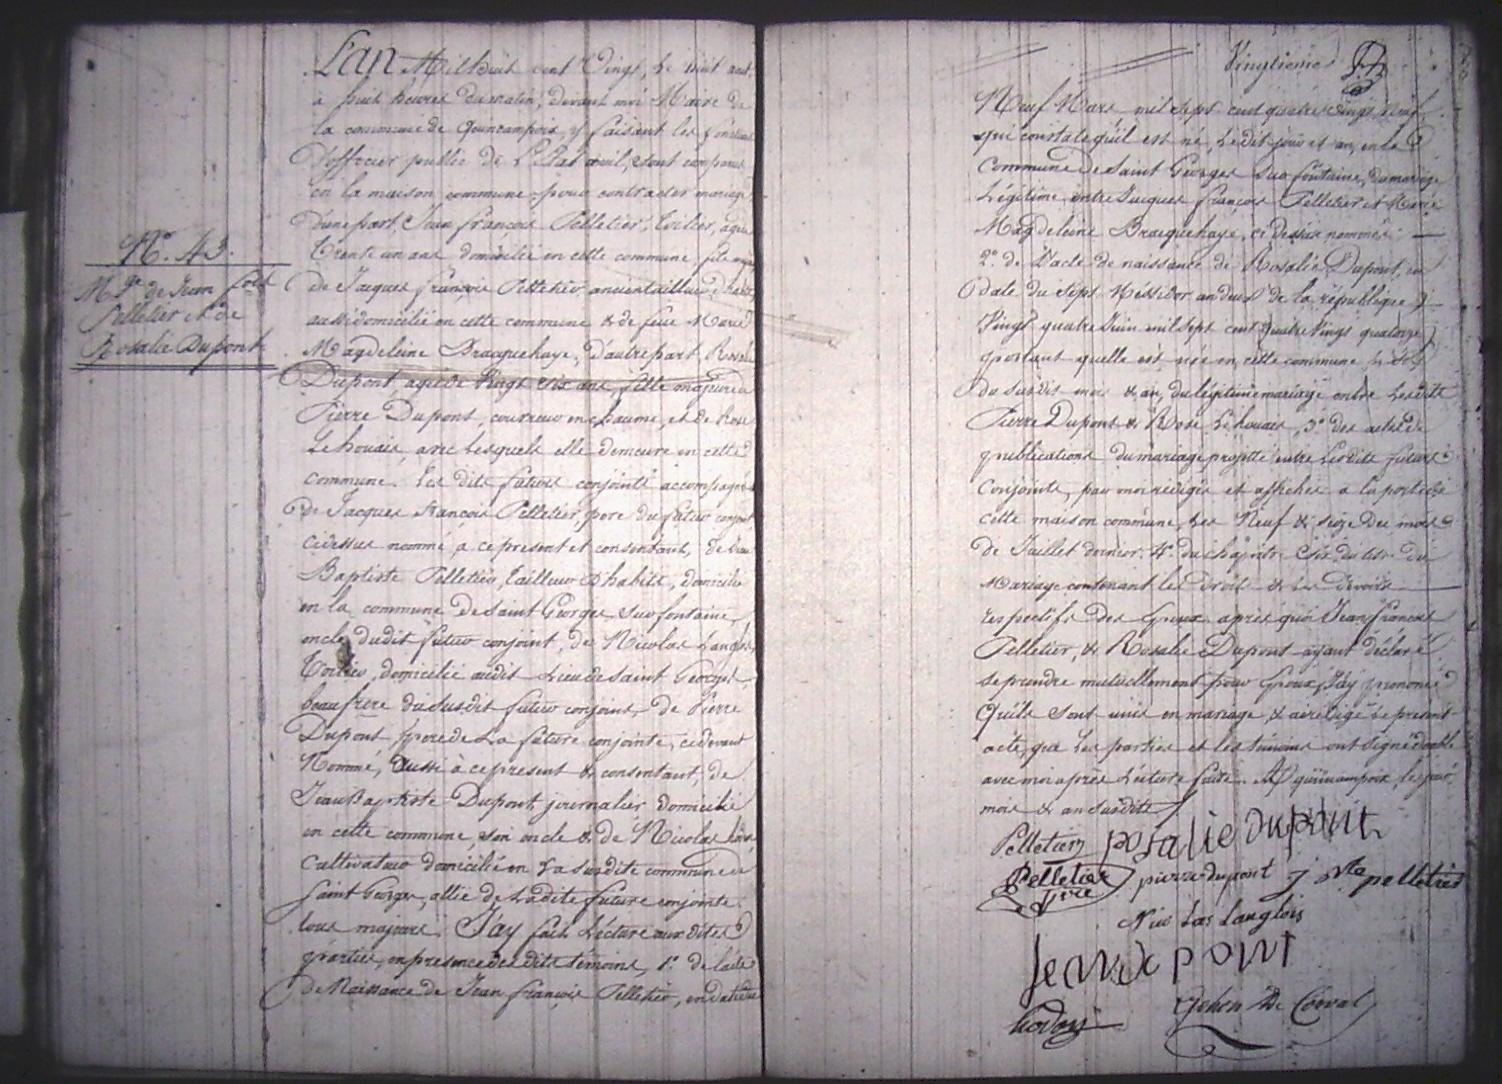 N.° 43.
M.ge de Jean fois
Pelletier et de
Rosalie Dupont
L'an Mil huit cent Vingt, Le huit aout
a huit heures du matin, devant moi Maire de
la commune de Quincampoix, y faisant les fonctions
D'officier public de L'Etat civil, sont comparus
en la maison commune pour contracter mariage
D'une part, Jean françois Pelletier, toilier, agé de
Trente un ans domicilié en cette commune fils majeur
de Jacques françois Pelletier ancien tailleur d'habits
aussi domicilié en cette commune & de feue Marie
Magdeleine Bracquehaye, d'autre part Rosalie
Dupont agée de Vingt six ans, fille majeure de
Pierre Dupont, couvreur en chaume, et de Rose
Lehouais, avec lesquels elle demeure en cette
commune. Les dits futurs conjoints accompagnés
de Jacques françois Pelletier, pere du futur conjoint
cidessus nommé, a ce present et consentant, de Jean
Baptiste Pelletier, tailleur d'habits, domicilié
en la commune de Saint Georges sur fontaine,
oncle dudit futur conjoint, de Nicolas Langlois
Toilier, domicilié audit Lieu de saint Georges,
beaufrere du susdit futur conjoint, de Pierre
Dupont, pere de La future conjointe, cidevant
Nommé, aussi à ce present & consentant, de
Jean Baptiste Dupont, journalier domicilié
en cette commune, son oncle & de Nicolas
Cultivateur domicilié en La susdite commune de
Saint Georges, allié de Ladite future conjointe
tous majeurs. J'ay fait Lecture aux dites
parties, en presence des dits temoins, 1.° de l'acte
de Naissance de Jean françois Pelletier, en date du
Vingtieme
Neuf Mars mil sept cent quatre vingt neuf
qui constate qu'il est né, Ledit jour et an, en la
Commune de Saint Georges sur fontaine, du mariage
Légitime entre Jacques françois Pelletier et Marie
Magdeleine Bracquehaye, ci dessus nommés
2.° de L'acte de naissance de Rosalie Dupont, en
date du sept Messidor an deux de la république
Vingt quatre Juin mil sept cent quatre vingt quatorze
portant quelle est née en cette commune
du susdit mois & an, du légitime mariage entre Lesdits
Pierre Dupont & Rose Lehouais, 3.° des actes de
publications du mariage projetté entre Lesdits futurs
conjoints, par moi redigés et affichés a la porte de
cette maison commune, Les Neuf & seize du mois
de Juillet dernier. 4.° du chapitre six du titre du
Mariage contenant les droits & Les devoirs
respectifs des Epoux. après quoi Jean francois
Pelletier, & Rosalie Dupont ayant déclaré
se prendre mutuellement pour Epoux, J'ay prononcé
Qu'ils sont unis en mariage, & ai redigé le present
acte, que Les parties et les temoins ont signé double
avec moi après Lecture faite. A quincampoix, les jour,
mois & an susdits
Pelletier rosalie dupont
Pelletier pere pierre dupont j Bte pelletier
Nicolas Langlois
Jean dupont